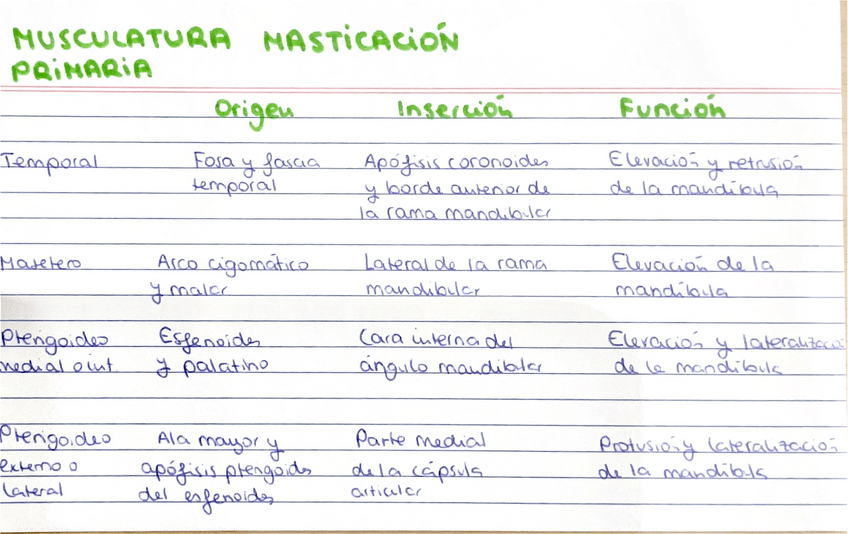 MUSCULATURA MASTICACIÓN
PRIMARIA
Origen Inserción Función
Temporal Fosa y fascia Apófisis coronoides Elevación y retrusión
temporal y borde anterior de de la mandíbula
la rama mandibular
Masetero Arco cigomático Lateral de la rama Elevación de la
y malar mandibular mandíbula
Pterigoideo Esfenoides Cara interna del Elevación y lateralización
medial o int y palatino ángulo mandibular de la mandíbula
Pterigoideo Ala mayor y Parte medial Protusión y lateralización
externo o apófisis pterigoides de la cápsula de la mandíbula
lateral del esfenoides articular